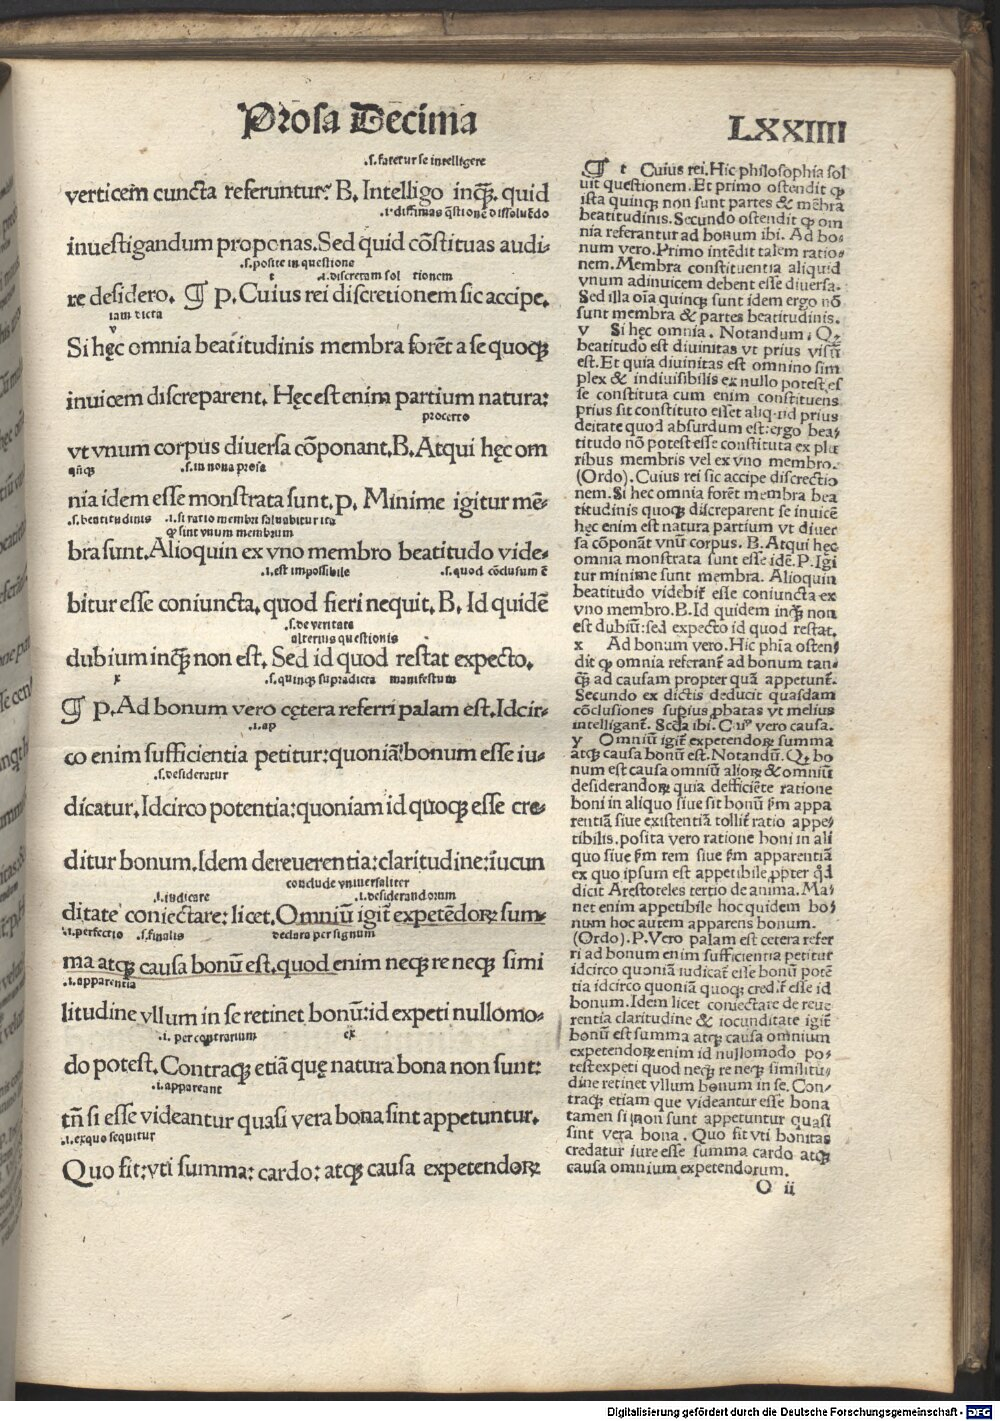 Prosa Decima
LXXIIII
.s. fatetur se intelligere
verticem cuncta referuntur? B. Intelligo inqȝ. quid
inuestigandum proponas. Sed quid cōstituas audi-
.s. posite in questione
re desidero. ¶ P. Cuius rei discretionem sic accipe.
iam dicta
v
Si hęc omnia beatitudinis membra forēt a se quoqȝ
inuicem discreparent. Hęc est enim partium natura:
procerto
vt vnum corpus diuersa cōponant. B. Atqui hęc om
.s. in nona prosa
nia idem esse monstrata sunt. P. Minime igitur mē-
.s. beatitudinis .i. si ratio membri saluabitur ita
qp sint vnum membrum
bra sunt. Alioquin ex vno membro beatitudo vide-
.i. est impossibile .s. quod cōclusum ē
bitur esse coniuncta. quod fieri nequit. B. Id quidē
.s. de veritate
alterius questionis
dubium inqȝ non est. Sed id quod restat expecto.
x .s. quinqȝ supradicta manifestum
¶ P. Ad bonum vero cętera referri palam est. Idcir-
co enim sufficientia petitur: quoniā bonum esse iu-
.s. desideratur
dicatur. Idcirco potentia: quoniam id quoqȝ esse cre-
ditur bonum. Idem de reuerentia: claritudine: iucun
conclude vniuersaliter
.i. iudicare .i. desiderandorum
ditate coniectare: licet. Omniū igit expetēdorꝝ sum-
.i. perfectio .s. finalis declaro per signum
ma atqȝ causa bonū est. quod enim neqȝ re neqȝ simi
.i. apparentia
litudine vllum in se retinet bonū: id expeti nullomo-
.i. per contrarium ex
do potest. Contraqȝ etiā quę natura bona non sunt:
.i. appareant
tn̄ si esse videantur quasi vera bona sint appetuntur.
.i. ex quo sequitur
Quo fit: vti summa: cardo: atqȝ causa expetendorꝝ
¶ t Cuius rei. Hic philosophia sol
uit questionem. Et primo ostendit qp
ista quinqȝ non sunt partes & mēbra
beatitudinis. Secundo ostendit qp om
nia referantur ad bonum ibi. Ad bo-
num vero. Primo intēdit talem ratio-
nem. Membra constituentia aliquid
vnum adinuicem debent esse diuersa.
Sed illa oīa quinqȝ sunt idem ergo nō
sunt membra & partes beatitudinis.
v Si hęc omnia. Notandum. Qp
beatitudo est diuinitas vt prius visū
est. Et quia diuinitas est omnino sim
plex & indiuisibilis ex nullo potest es
se constituta cum enim constituens
prius sit constituto esset aliquid prius
deitate quod absurdum est: ergo bea-
titudo nō potest esse constituta ex plu
ribus membris vel ex vno membro.
(Ordo). Cuius rei sic accipe discrectio
nem. Si hec omnia forēt membra bea
titudinis quoqȝ discreparent se inuicē
hęc enim est natura partium vt diuer
sa cōponāt vnū corpus. B. Atqui hęc
omnia monstrata sunt esse idē. P. Igi
tur minime sunt membra. Alioquin
beatitudo videbit̄ esse coniuncta ex
vno membro. B. Id quidem inqȝ non
est dubiū: sed expecto id quod restat.
x Ad bonum vero. Hic phīa osten-
dit qp omnia referant̄ ad bonum tan-
qȝ ad causam propter quā appetunt̄.
Secundo ex dictis deducit quasdam
cōclusiones supius probatas vt melius
intelligant̄. Scda ibi. Cuius vero causa.
y Omniū igit̄ expetendorꝝ summa
atqȝ causa bonū est. Notandū. Qp bo
num est causa omniū aliorꝝ & omniū
desiderandorꝝ quia defficiēte ratione
boni in aliquo siue sit bonū ẜm appa
rentiā siue existentiā tollit̄ ratio appe-
tibilis. posita vero ratione boni in ali
quo siue ẜm rem siue ẜm apparentiā
ex quo ipsum est appetibile ppter qd
dicit Arestoteles tertio de anima. Ma-
net enim appetibile hoc quidem bo-
num hoc autem apparens bonum.
(Ordo). P. Vero palam est cetera refer
ri ad bonum enim sufficientia petitur
idcirco quoniā iudicat̄ esse bonū potē
tia idcirco quoniā quoqȝ credit̄ esse id
bonum. Idem licet coniectate de reue
rentia claritudine & iocunditate igit̄
bonū est summa atqȝ causa omnium
expetendorꝝ enim id nullomodo po-
test expeti quod neqȝ re neqȝ similitu-
dine retinet vllum bonum in se. Con-
traqȝ etiam que videantur esse bona
tamen si non sunt appetuntur quasi
sint vera bona. Quo fit vti bonitas
credatur iure esse summa cardo atqȝ
causa omnium expetendorum.
O ii
Digitalisierung gefördert durch die Deutsche Forschungsgemeinschaft - DFG